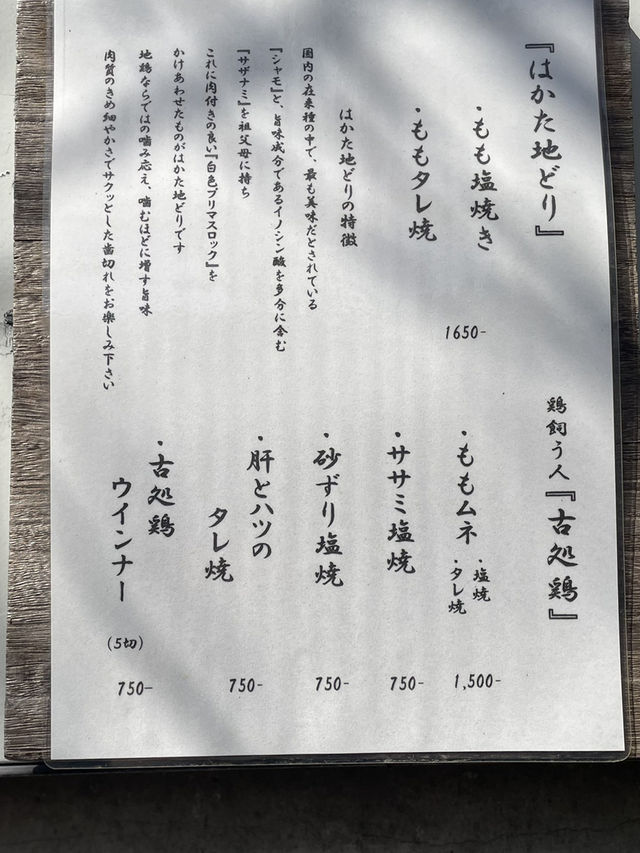 『はかた地どり』
・もも塩焼き
・ももタレ焼
1650-
はかた地どりの特徴
国内の在来種の中で、最も美味だとされている
『シャモ』と、旨味成分であるイノシン酸を多分に含む
『サザナミ』を祖父母に持ち
これに肉付きの良い『白色プリマスロック』を
かけあわせたものがはかた地どりです
地鶏ならではの噛み応え、噛むほどに増す旨味
肉質のきめ細やかさでサクッとした歯切れをお楽しみ下さい
鶏飼う人『古処鶏』
・ももムネ
・塩焼
・タレ焼
1,500-
・ササミ塩焼
750-
・砂ずり塩焼
750-
・肝とハツの
タレ焼
750-
・古処鶏
ウインナー
(5切)
750-